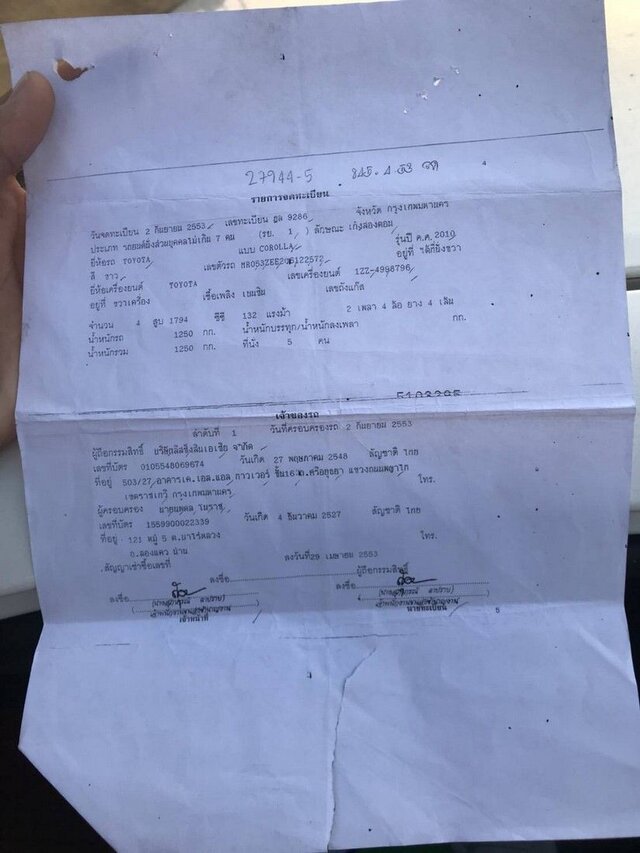 27944-5
4
รายการจดทะเบียน
วันจดทะเบียน 2 กันยายน 2553 เลขทะเบียน ฎล 9286 จังหวัด กรุงเทพมหานคร
ประเภท รถยนต์นั่งส่วนบุคคลไม่เกิน 7 คน (รย. 1 ) ลักษณะ เก๋งสองตอน
ยี่ห้อรถ TOYOTA แบบ COROLLA รุ่นปี ค.ศ. 2010
สี ขาว เลขตัวรถ MR053ZEE206122572 อยู่ที่
ยี่ห้อเครื่องยนต์ TOYOTA เลขเครื่องยนต์ 1ZZ-4998796
อยู่ที่ ขวาเครื่อง เชื้อเพลิง เบนซิน เลขถังแก๊ส
จำนวน 4 สูบ 1794 ซีซี 132 แรงม้า 2 เพลา 4 ล้อ ยาง 4 เส้น
น้ำหนักรถ 1250 กก. น้ำหนักบรรทุก/น้ำหนักลงเพลา กก.
น้ำหนักรวม 1250 กก. ที่นั่ง 5 คน
เจ้าของรถ
ลำดับที่ 1 วันที่ครอบครองรถ 2 กันยายน 2553
ผู้ถือกรรมสิทธิ์ จำกัด
เลขที่บัตร 0105548069674 วันเกิด 27 พฤษภาคม 2548 สัญชาติ ไทย
ที่อยู่ 503/27 อาคารเค.เอส.แอล ทาวเวอร์ ชั้น16 ถ.ศรีอยุธยา แขวงถนนพญาไท
เขตราชเทวี กรุงเทพมหานคร โทร.
ผู้ครอบครอง
เลขที่บัตร 1559900022339 วันเกิด 4 ธันวาคม 2527 สัญชาติ ไทย
ที่อยู่ 121 หมู่ 5 ต.นาไร่หลวง โทร.
อ.สองแคว น่าน
สัญญาเช่าซื้อเลขที่ ลงวันที่29 เมษายน 2553
ลงชื่อ ผู้ถือกรรมสิทธิ์
ลงชื่อ ลงชื่อ
เจ้าหน้าที่ นายทะเบียน
5